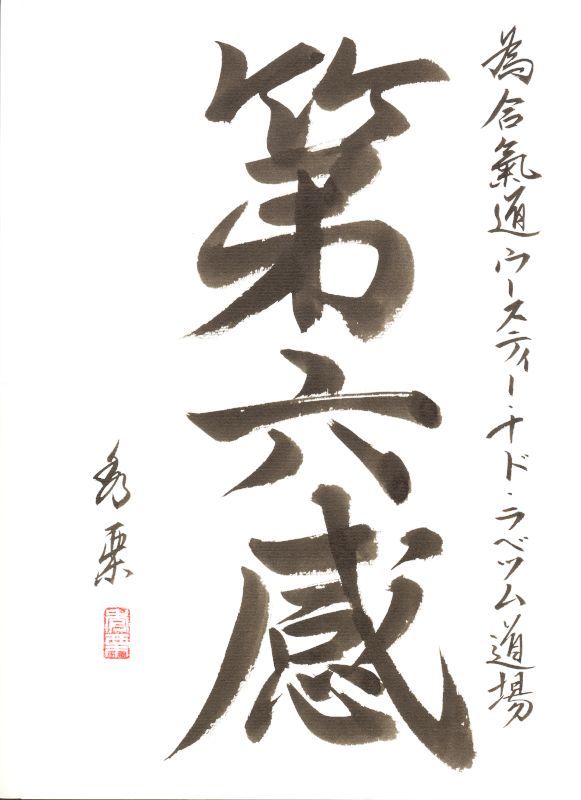 為合氣道ウースティー・ナド・ラベツム道場
第六感
秀栗